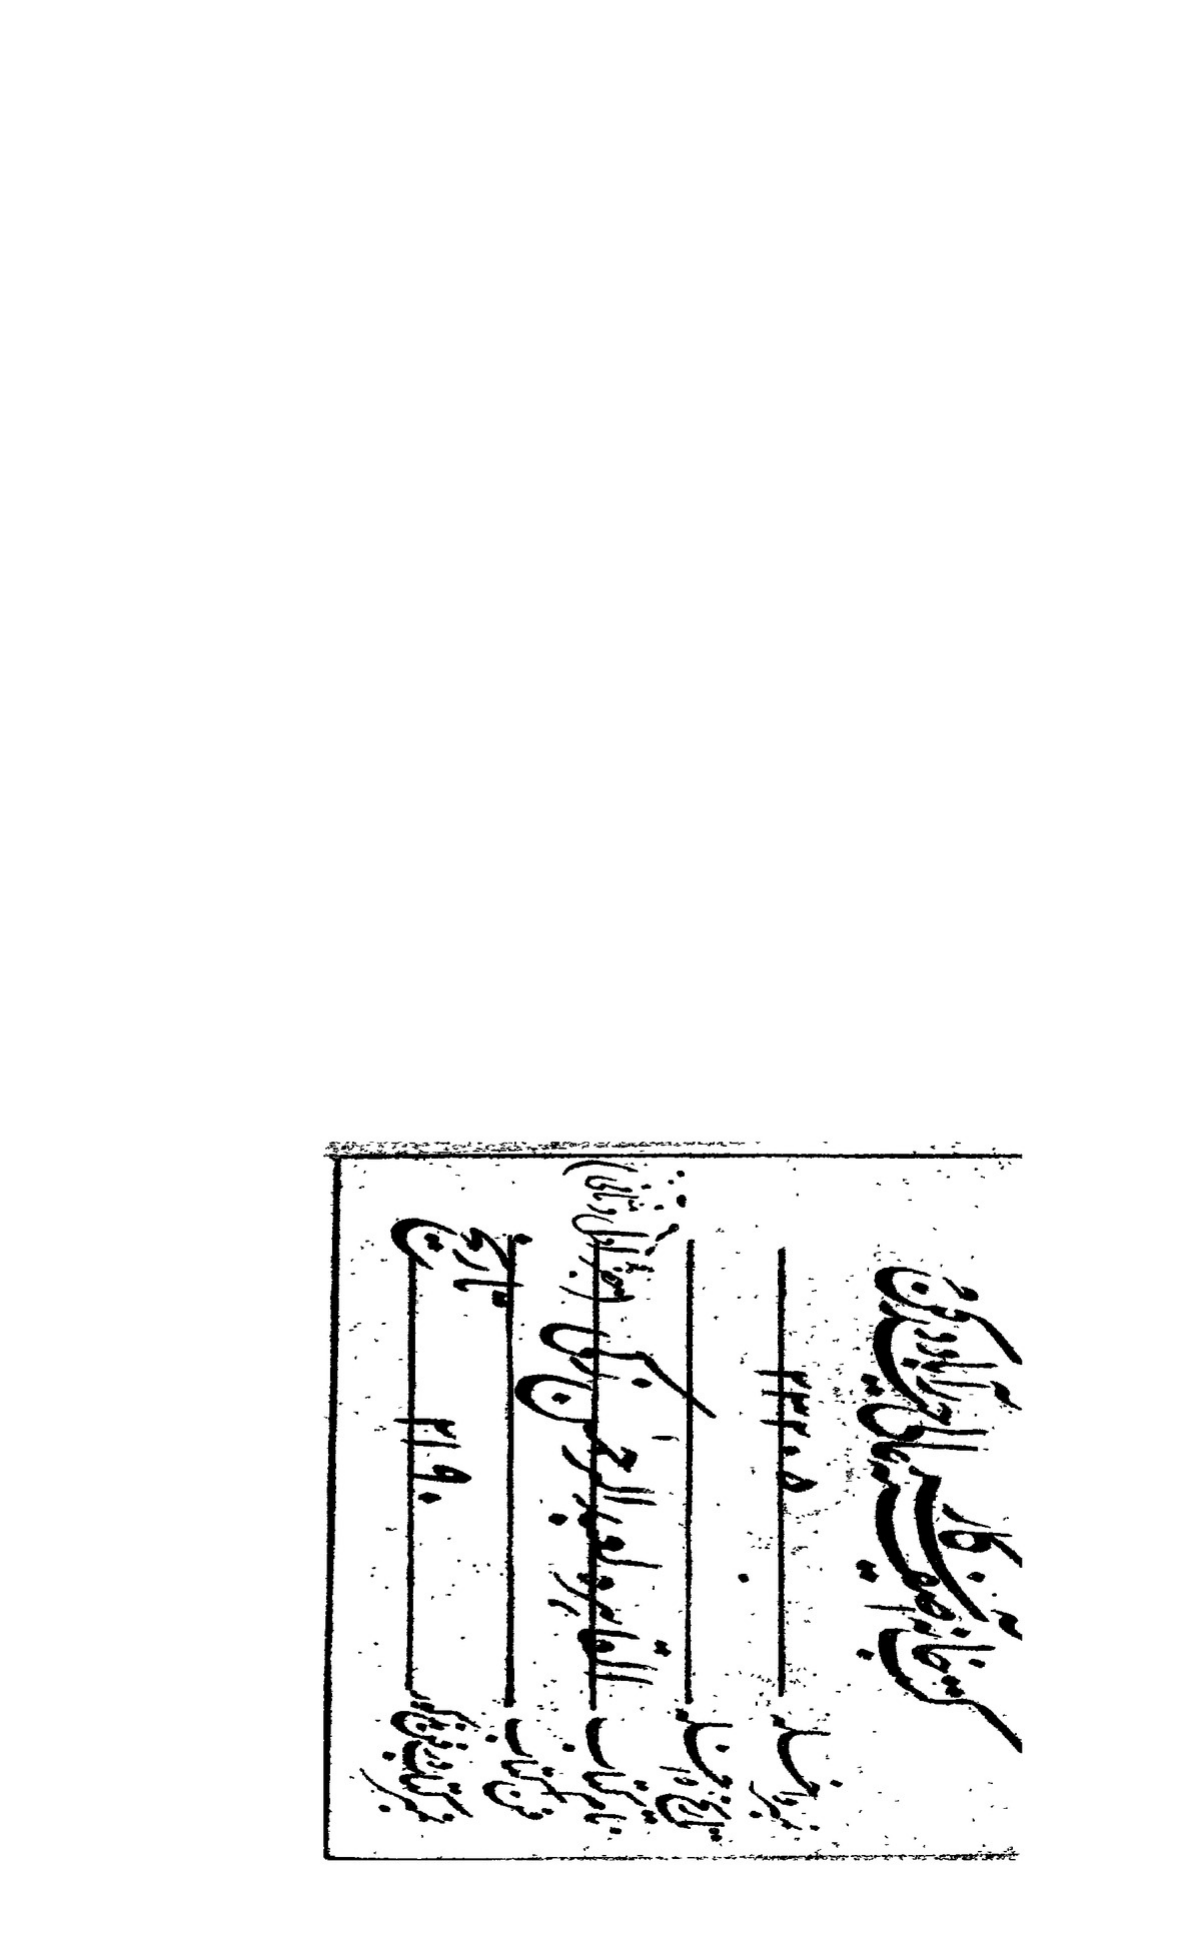 کتب خانہ آصفیہ سرکار عالی حیدرآباد دکن
نمبر داخلہ
تاریخ داخلہ
نام کتاب القاہرہ لعبد الرحمن زکی
فن کتاب تاریخ
نمبر کتاب در فن مذکور ۲۱۹۰